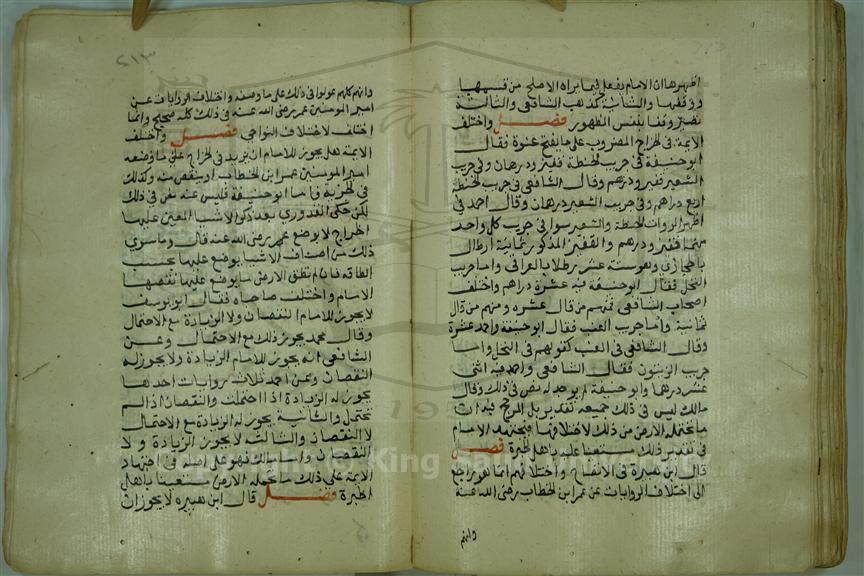 اظهرها ان الامام يفعل فيما يراه الاصلح من قسمتها
ووقفها والثانية كمذهب الشافعي والثالثة
تصير وقفا بنفس الظهور فصل واختلف
الايمة في الخراج المضروب على ما يفتح عنوة فقال
ابو حنيفة في جريب الحنطة قفيز ودرهمان وفي جريب
الشعير قفيز ودرهم وقال الشافعي في جريب الحنطة
اربع دراهم وفي جريب الشعير درهمان وقال احمد في
اظهر الروايات الحنطة والشعير سوا في جريب كل واحد
منهما قفيز ودرهم والقفيز المذكور ثمانية ارطال
بالحجازي وهو ستة عشر رطلا بالعراقي واما جريب
النخل فقال ابو حنيفة فيه عشرة دراهم واختلف
اصحاب الشافعي فمنهم من قال عشره ومنهم من قال
ثمانية واما جريب العنب فقال ابو حنيفة واحمد عشرة
وقال الشافعي في العنب كقولهم في النخل واما
جريب الزيتون فقال الشافعي واحمد فيه اثنى
عشر درهما وابو حنيفة لم يوجد له نص في ذلك وقال
مالك ليس في ذلك جميعه تقدير بل المرجع فيه الى
ما تحتمله الارض من ذلك لاختلافها فيجتهد الامام
في تقدير ذلك مستعينا عليه باهل الخبرة فصل
قال ابن هبيرة في الافصاح واختلافهم انما هو راجع
الى اختلاف الروايات عن عمر ابن الخطاب رضي الله عنه
وانهم
٢١٣
وانهم كلهم عولوا في ذلك على ما وضعه واختلاف الروايات عن
امير المومنين عمر رضي الله عنه في ذلك كله صحيح وانما
اختلف لاختلاف النواحي فصل واختلف
الايمة هل يجوز للامام ان يزيد في الخراج على ما وضعه
امير المومنين عمر ابن الخطاب او ينقص منه وكذلك
في الجزية فاما ابو حنيفة فليس عنه نص في ذلك
لكن حكى القدوري بعد ذكر الاشيا المعين عليها
الخراج لما وضع عمر رضي الله عنه قال وما سوى
ذلك من اصناف الاشيا يوضع عليها بحسب
الطاقة فان لم تطق الارض ما يوضع عليها نقصها
الامام واختلف صاحباه فقال ابو يوسف
لا يجوز للامام النقصان ولا الزيادة مع الاحتمال
وقال محمد يجوز ذلك مع الاحتمال وعن
الشافعي انه يجوز للامام الزيادة ولا يجوز له
النقصان وعن احمد ثلاث روايات احدها
يجوز له الزيادة اذا احتملت والنقصان اذا لم
تحتمل والثانية يجوز له الزيادة مع الاحتمال
لا النقصان والثالثة لا يجوز الزيادة ولا
النقصان واما مالك فهو على اصله في اجتهاد
الايمة على ذلك ما تحتمله الارض مستعينا باهل
الخبرة فصل قال ابن هبيره لا يجوز ان